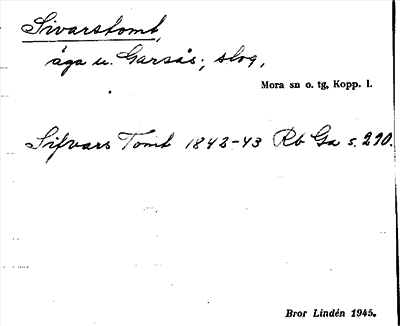 Sivarstomt,
äga u. Garsås; slog,
Mora sn o. tg, Kopp. l.
Sifvars Tomt 1842-43 Rb Ga s. 290.
Bror Lindén 1945.